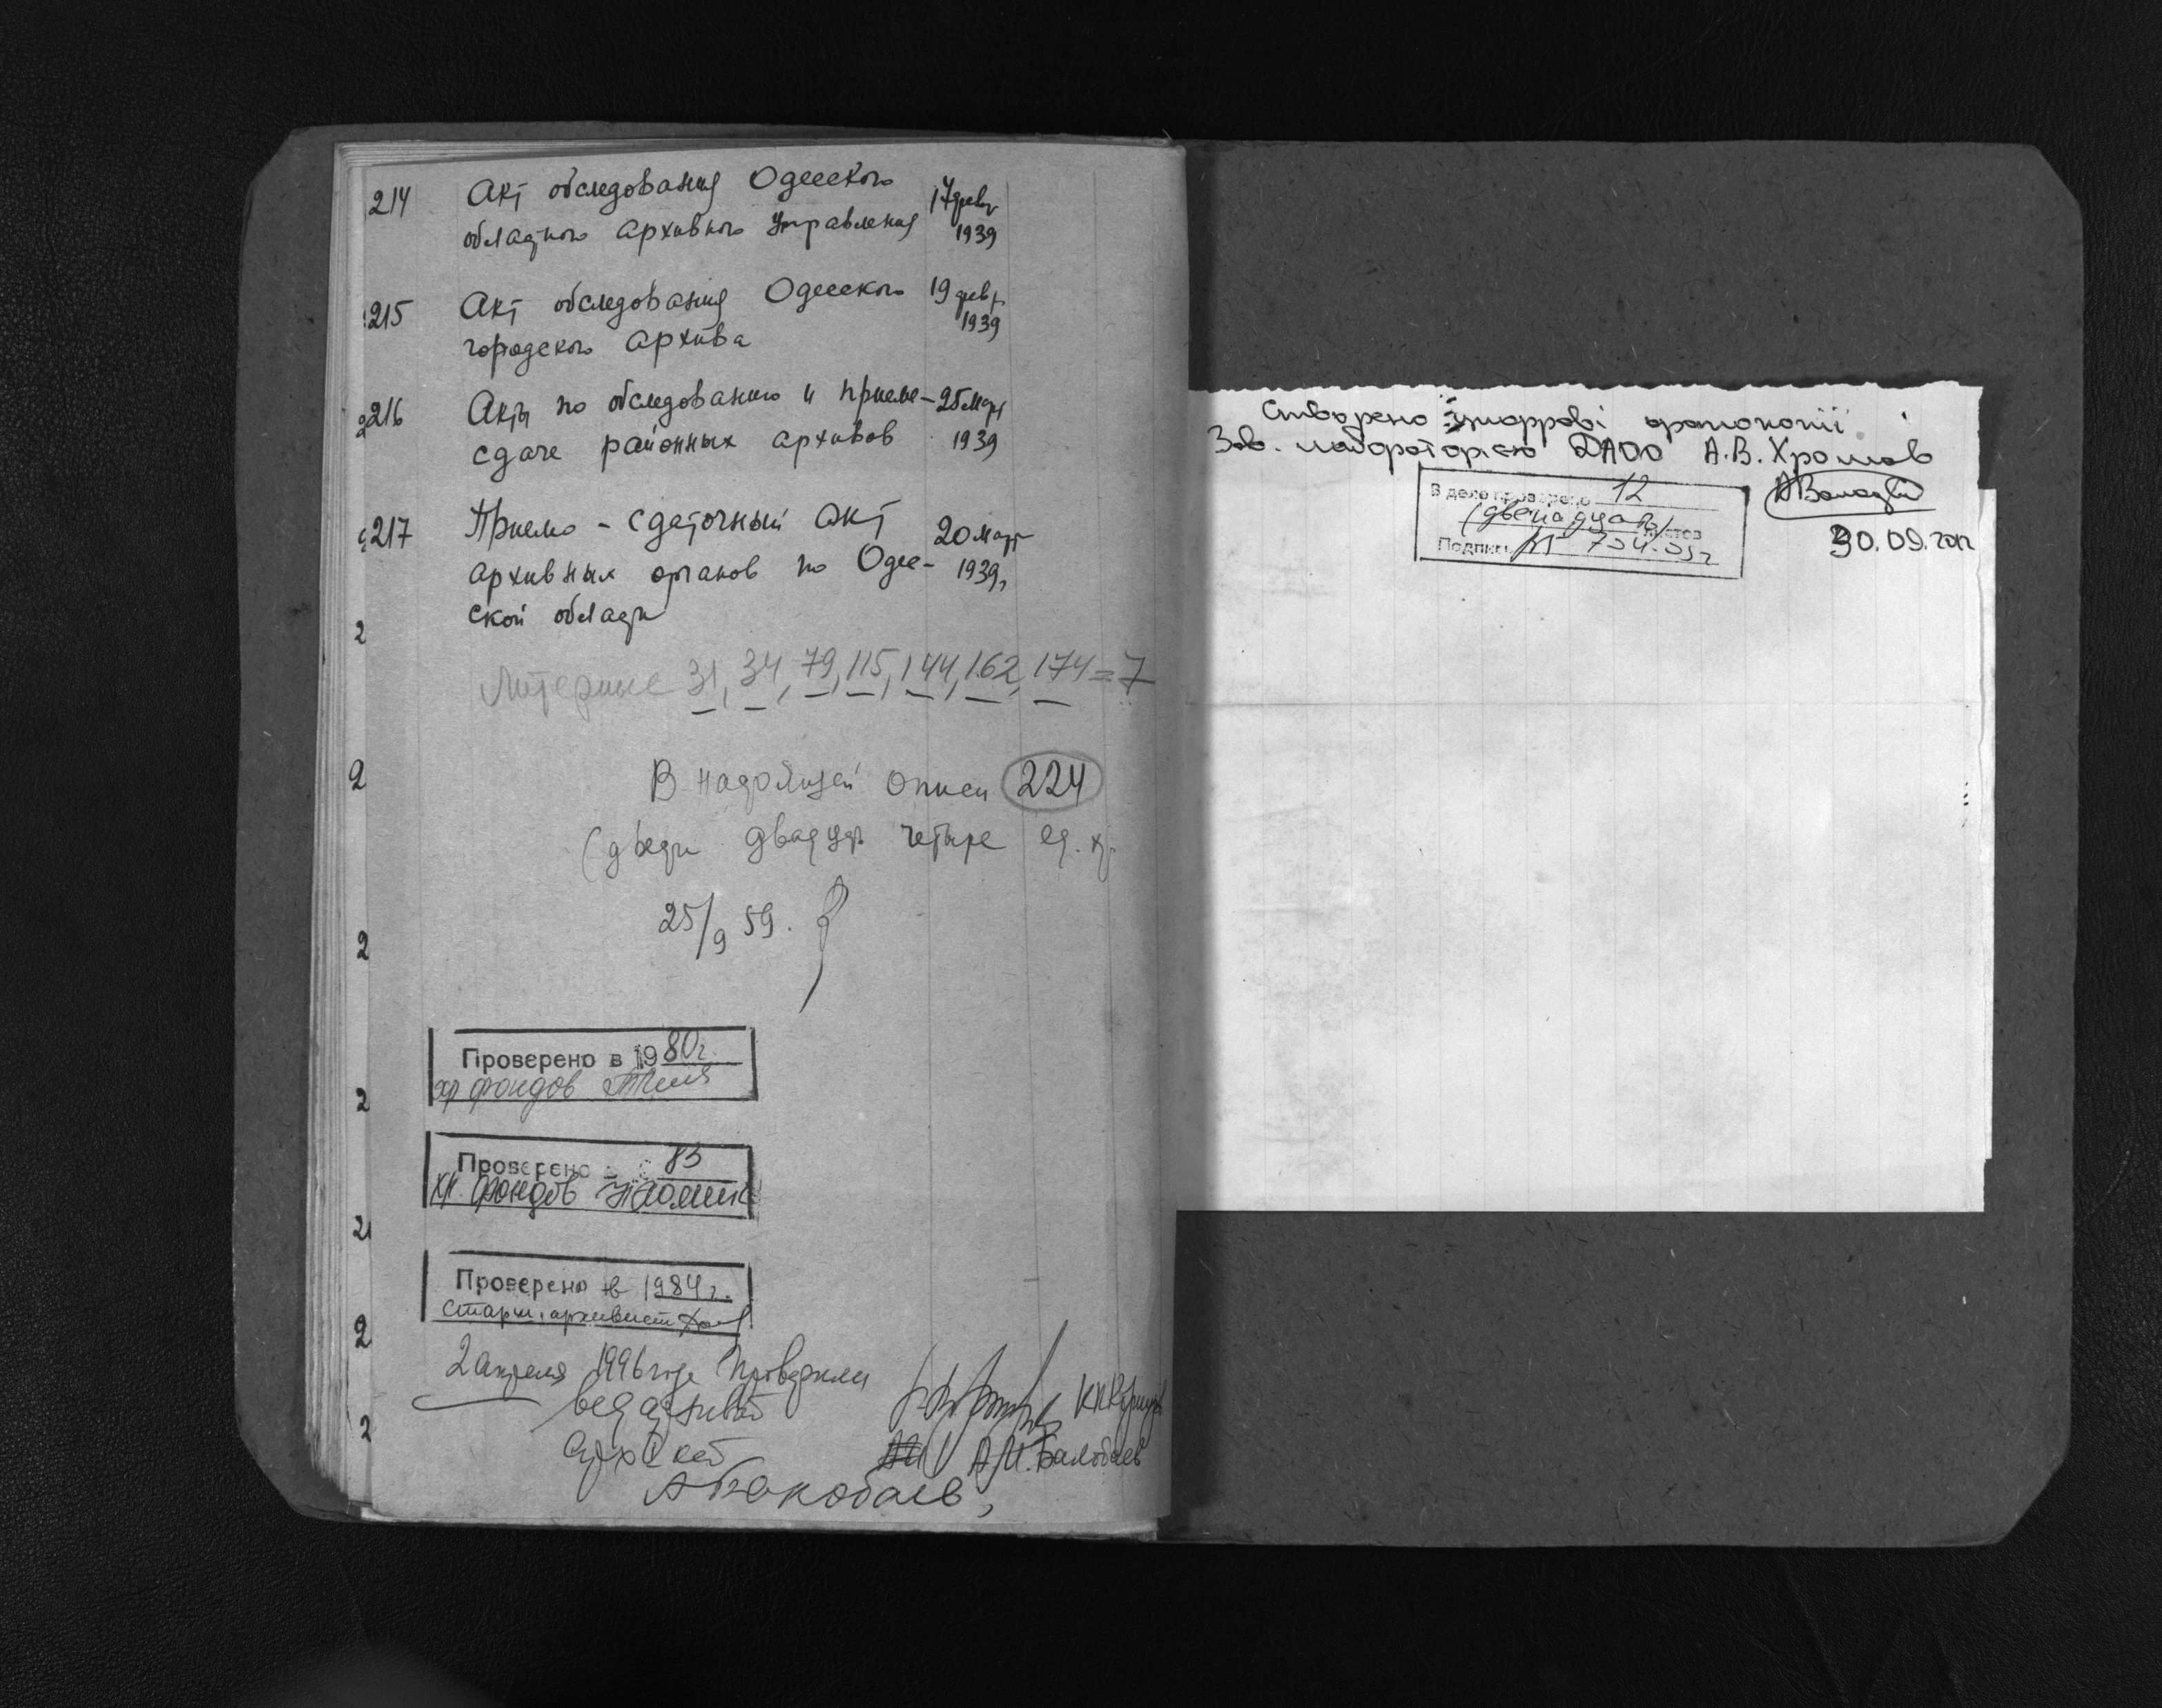 214 Акт обследования Одесского 17 февр
областного архивного управления 1939
215 Акт обследования Одесского 19 февр.
городского архива 1939
216 Акты по обследованию и приеме- 25 март
сдаче районных архивов 1939
217 Приемо-сдаточный акт 20 март
архивных органов по Одес- 1939г
ской области
Литерные 31, 34, 79, 115, 144, 162, 174 = 7
В настоящей описи 224
(двести двадцать четыре ед. хр.
25/9 59.
Проверено в 1980г.
хр фондов
Проверено 83
хр. фондов
Проверено в 1984г.
старш. архивист
2 апреля 1996 года Проверили
вед архивист
А.И. Балобаев
2
2
2
2
2
2
2
Створено цифрові фотокопії
Зав. лабораторією ДАОО А.В. Хромов
В дело проверено 12
(двенадцать) листов
Подпись
30.09.2012